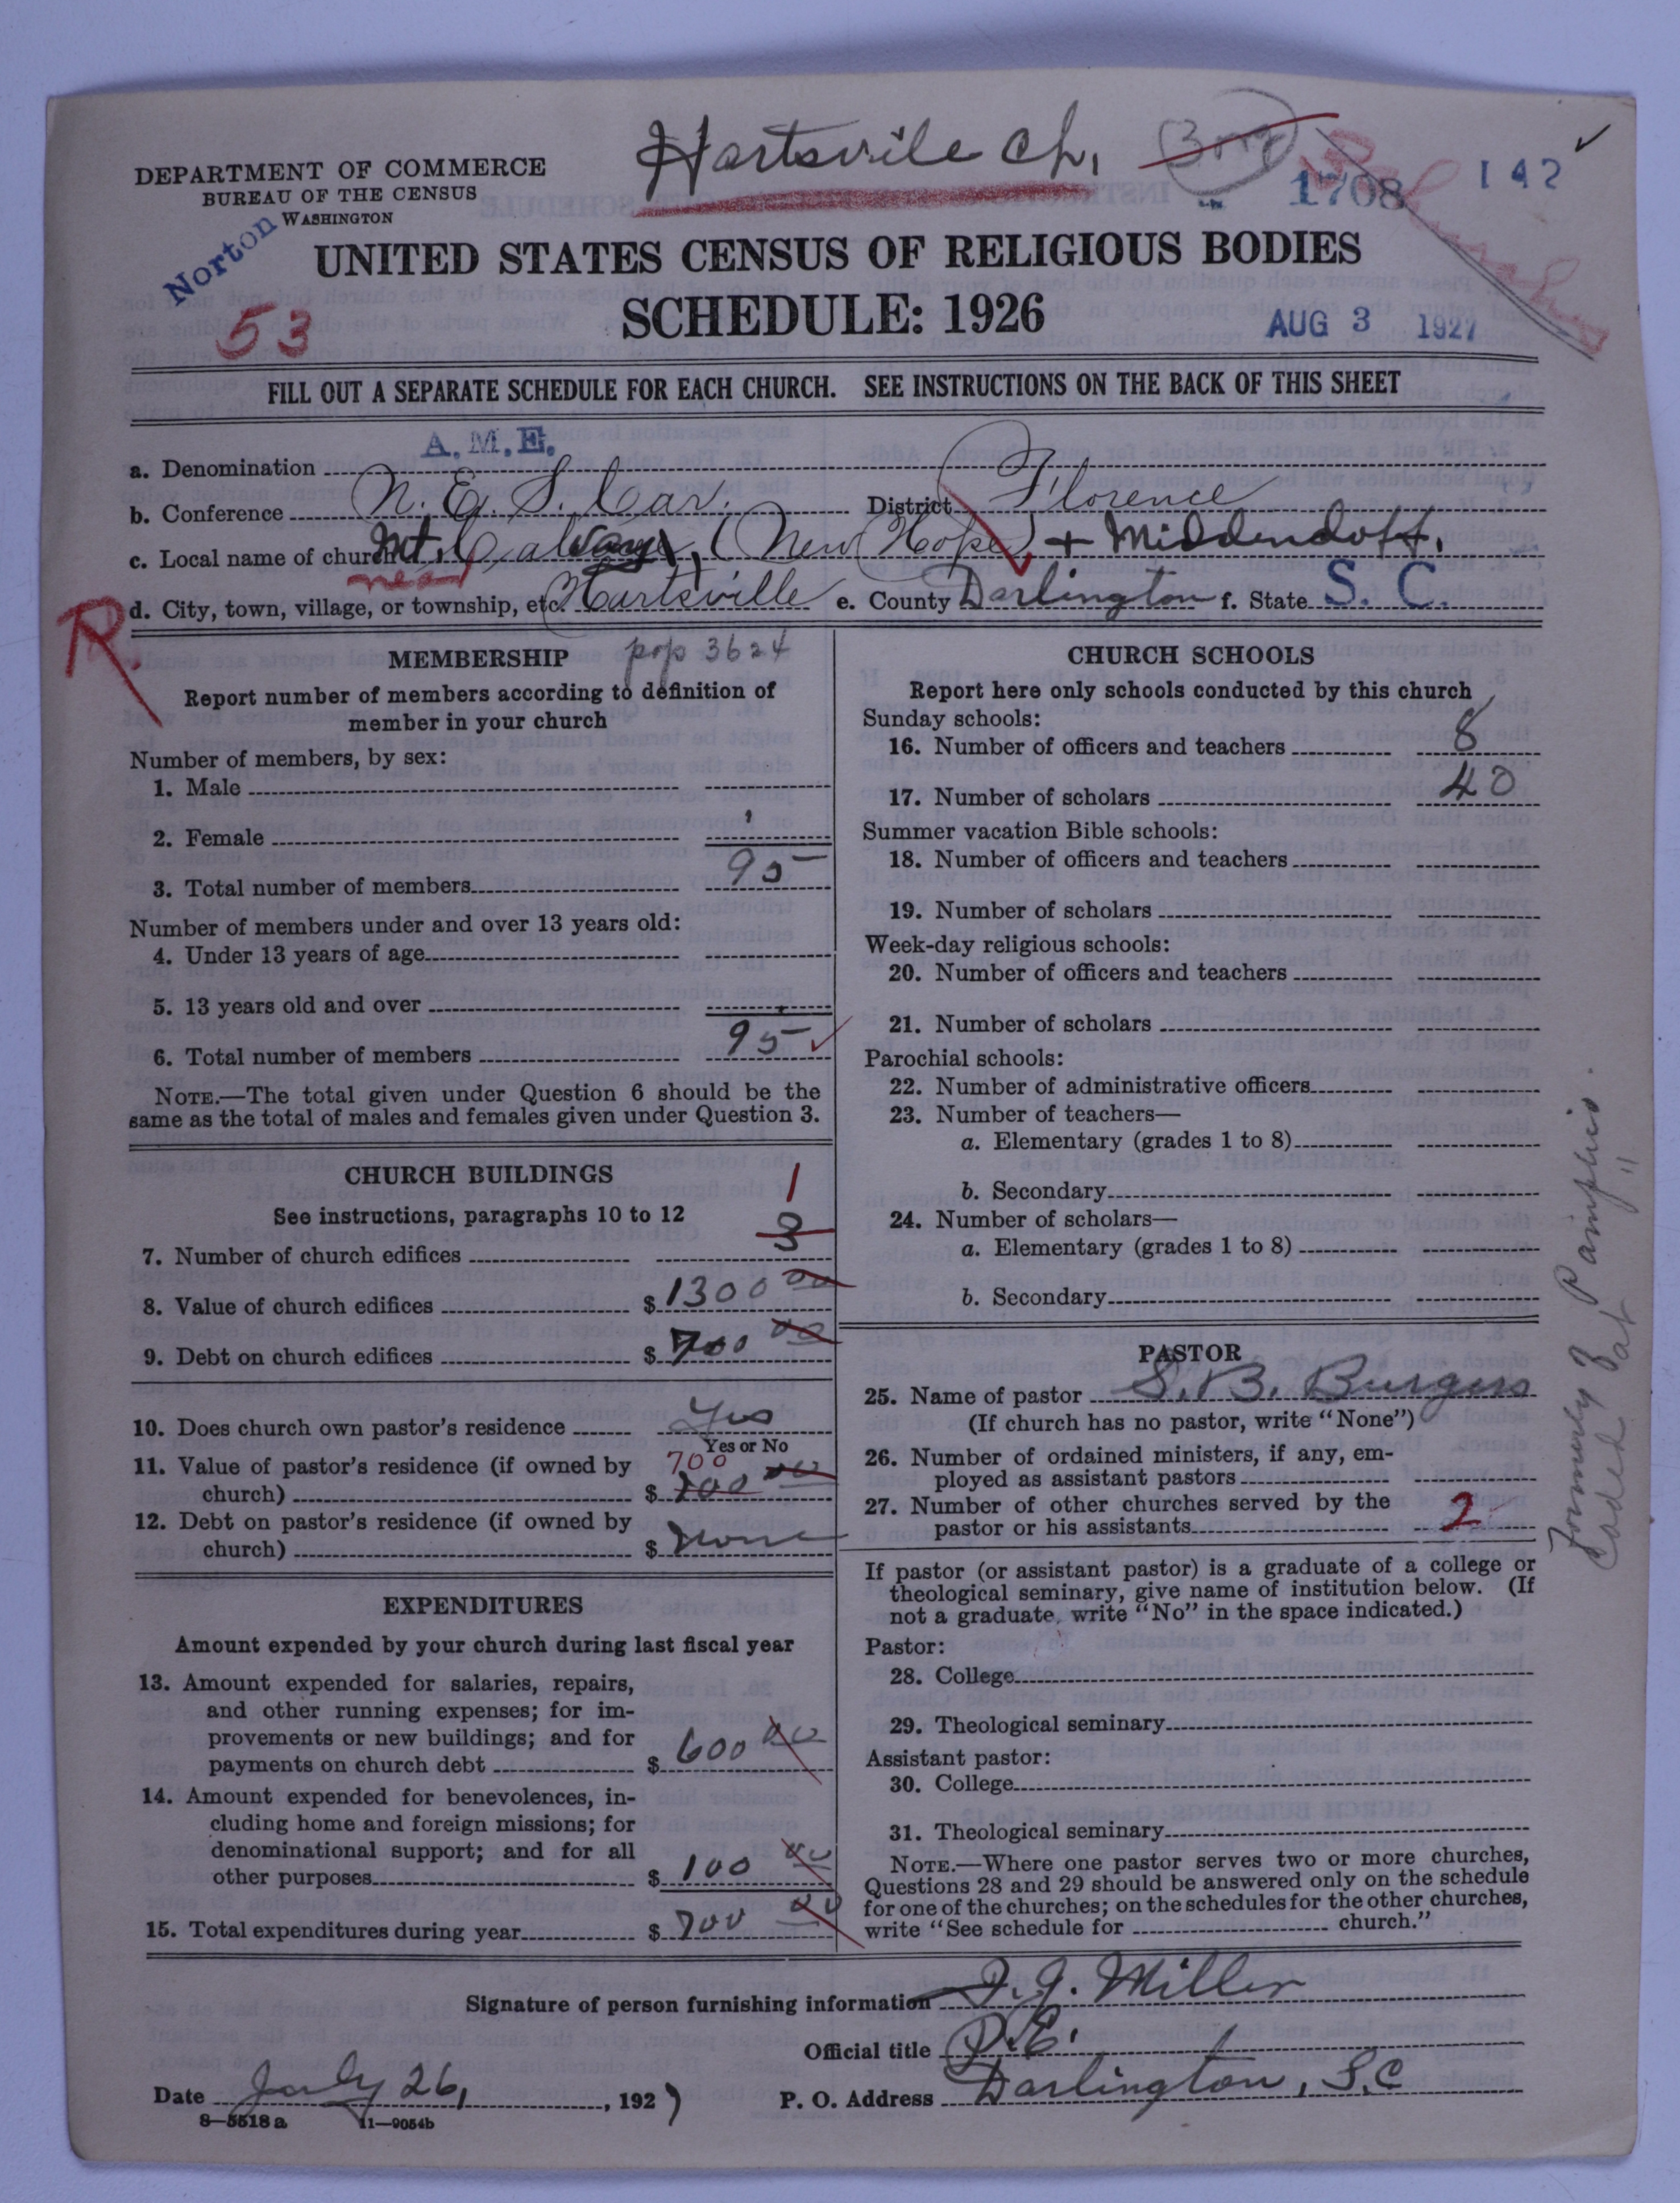 Hartsville Ch.
1708
142
DEPARTMENT OF COMMERCE
BUREAU OF THE CENSUS
WASHINGTON
Norton
UNITED STATES CENSUS OF RELIGIOUS BODIES
53
SCHEDULE: 1926
AUG 3 1927
FILL OUT A SEPARATE SCHEDULE FOR EACH CHURCH. SEE INSTRUCTIONS ON THE BACK OF THIS SHEET
A.M.E.
a. Denomination
b. Conference N. E. S. Car. District Florence
c. Local name of church Mt. Calvary, (New Hope) + Middendoff.
near
d. City, town, village, or township, etc. Hartsville e. County Darlington f. State S. C.
R.
MEMBERSHIP pop 3624
Report number of members according to definition of
member in your church
Number of members, by sex:
1. Male
2. Female
3. Total number of members 95
Number of members under and over 13 years old:
4. Under 13 years of age
5. 13 years old and over
6. Total number of members 95
NOTE.—The total given under Question 6 should be the
same as the total of males and females given under Question 3.
CHURCH BUILDINGS
1
See instructions, paragraphs 10 to 12
7. Number of church edifices 3
8. Value of church edifices $ 1300 00
9. Debt on church edifices $ 700 00
10. Does church own pastor's residence Yes
Yes or No
11. Value of pastor's residence (if owned by 700
church) $ 700 00
12. Debt on pastor's residence (if owned by
church) $ none
EXPENDITURES
Amount expended by your church during last fiscal year
13. Amount expended for salaries, repairs,
and other running expenses; for im-
provements or new buildings; and for
payments on church debt $ 600 00
14. Amount expended for benevolences, in-
cluding home and foreign missions; for
denominational support; and for all
other purposes $ 100 00
15. Total expenditures during year $ 700 00
CHURCH SCHOOLS
Report here only schools conducted by this church
Sunday schools:
16. Number of officers and teachers 8
17. Number of scholars 40
Summer vacation Bible schools:
18. Number of officers and teachers
19. Number of scholars
Week-day religious schools:
20. Number of officers and teachers
21. Number of scholars
Parochial schools:
22. Number of administrative officers
23. Number of teachers—
a. Elementary (grades 1 to 8)
b. Secondary
24. Number of scholars—
a. Elementary (grades 1 to 8)
b. Secondary
PASTOR
25. Name of pastor S. B. Burgess
(If church has no pastor, write "None")
26. Number of ordained ministers, if any, em-
ployed as assistant pastors
27. Number of other churches served by the
pastor or his assistants 2
If pastor (or assistant pastor) is a graduate of a college or
theological seminary, give name of institution below. (If
not a graduate, write "No" in the space indicated.)
Pastor:
28. College
29. Theological seminary
Assistant pastor:
30. College
31. Theological seminary
NOTE.—Where one pastor serves two or more churches,
Questions 28 and 29 should be answered only on the schedule
for one of the churches; on the schedules for the other churches,
write "See schedule for church."
Formerly
Coded at
Signature of person furnishing information J. J. Miller
Official title P. E.
Date July 26, 1927
P. O. Address Darlington, S.C
8—5518a 11—9054b